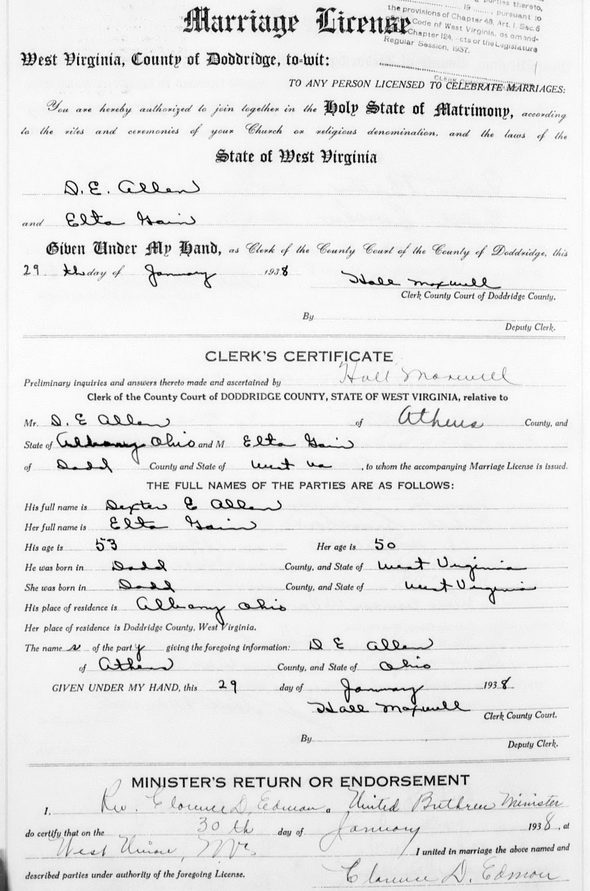 parties thereto,
19 Pursuant to
the provisions of Chapter 48, Art. 1, Sec. 6
Code of West Virginia, as amend-
Chapter 128, Acts of the Legislature
Regular Session, 1937.
Marriage License
West Virginia, County of Doddridge, to-wit:
TO ANY PERSON LICENSED TO CELEBRATE MARRIAGES:
You are hereby authorized to join together in the Holy State of Matrimony, according
to the rites and ceremonies of your Church or religious denomination, and the laws of the
State of West Virginia
D. E. Allen
and Elta Gain
Given Under My Hand, as Clerk of the County Court of the County of Doddridge, this
29 th day of January 1938 Hall Maxwell
Clerk County Court of Doddridge County.
By
Deputy Clerk.
CLERK'S CERTIFICATE
Preliminary inquiries and answers thereto made and ascertained by Hall Maxwell
Clerk of the County Court of DODDRIDGE COUNTY, STATE OF WEST VIRGINIA, relative to
Mr. D. E Allen of Athens County, and
State of Albany Ohio and M Elta Gain
of Dodd County and State of West Va , to whom the accompanying Marriage License is issued.
THE FULL NAMES OF THE PARTIES ARE AS FOLLOWS:
His full name is Dexter E Allen
Her full name is Elta Gain
His age is 53 Her age is 50
He was born in Dodd County, and State of West Virginia
She was born in Dodd County, and State of West Virginia
His place of residence is Albany Ohio
Her place of residence is Doddridge County, West Virginia.
The name s of the part y giving the foregoing information: D E Allen
of Athens County, and State of Ohio
GIVEN UNDER MY HAND, this 29 day of January 1938.
Hall Maxwell
Clerk County Court.
By
Deputy Clerk.
MINISTER'S RETURN OR ENDORSEMENT
I, Rev. Clarence D. Edman, United Brethren Minister
do certify that on the 30 th day of January 1938, at
West Union, W. Va. I united in marriage the above named and
described parties under authority of the foregoing License. Clarence D. Edman